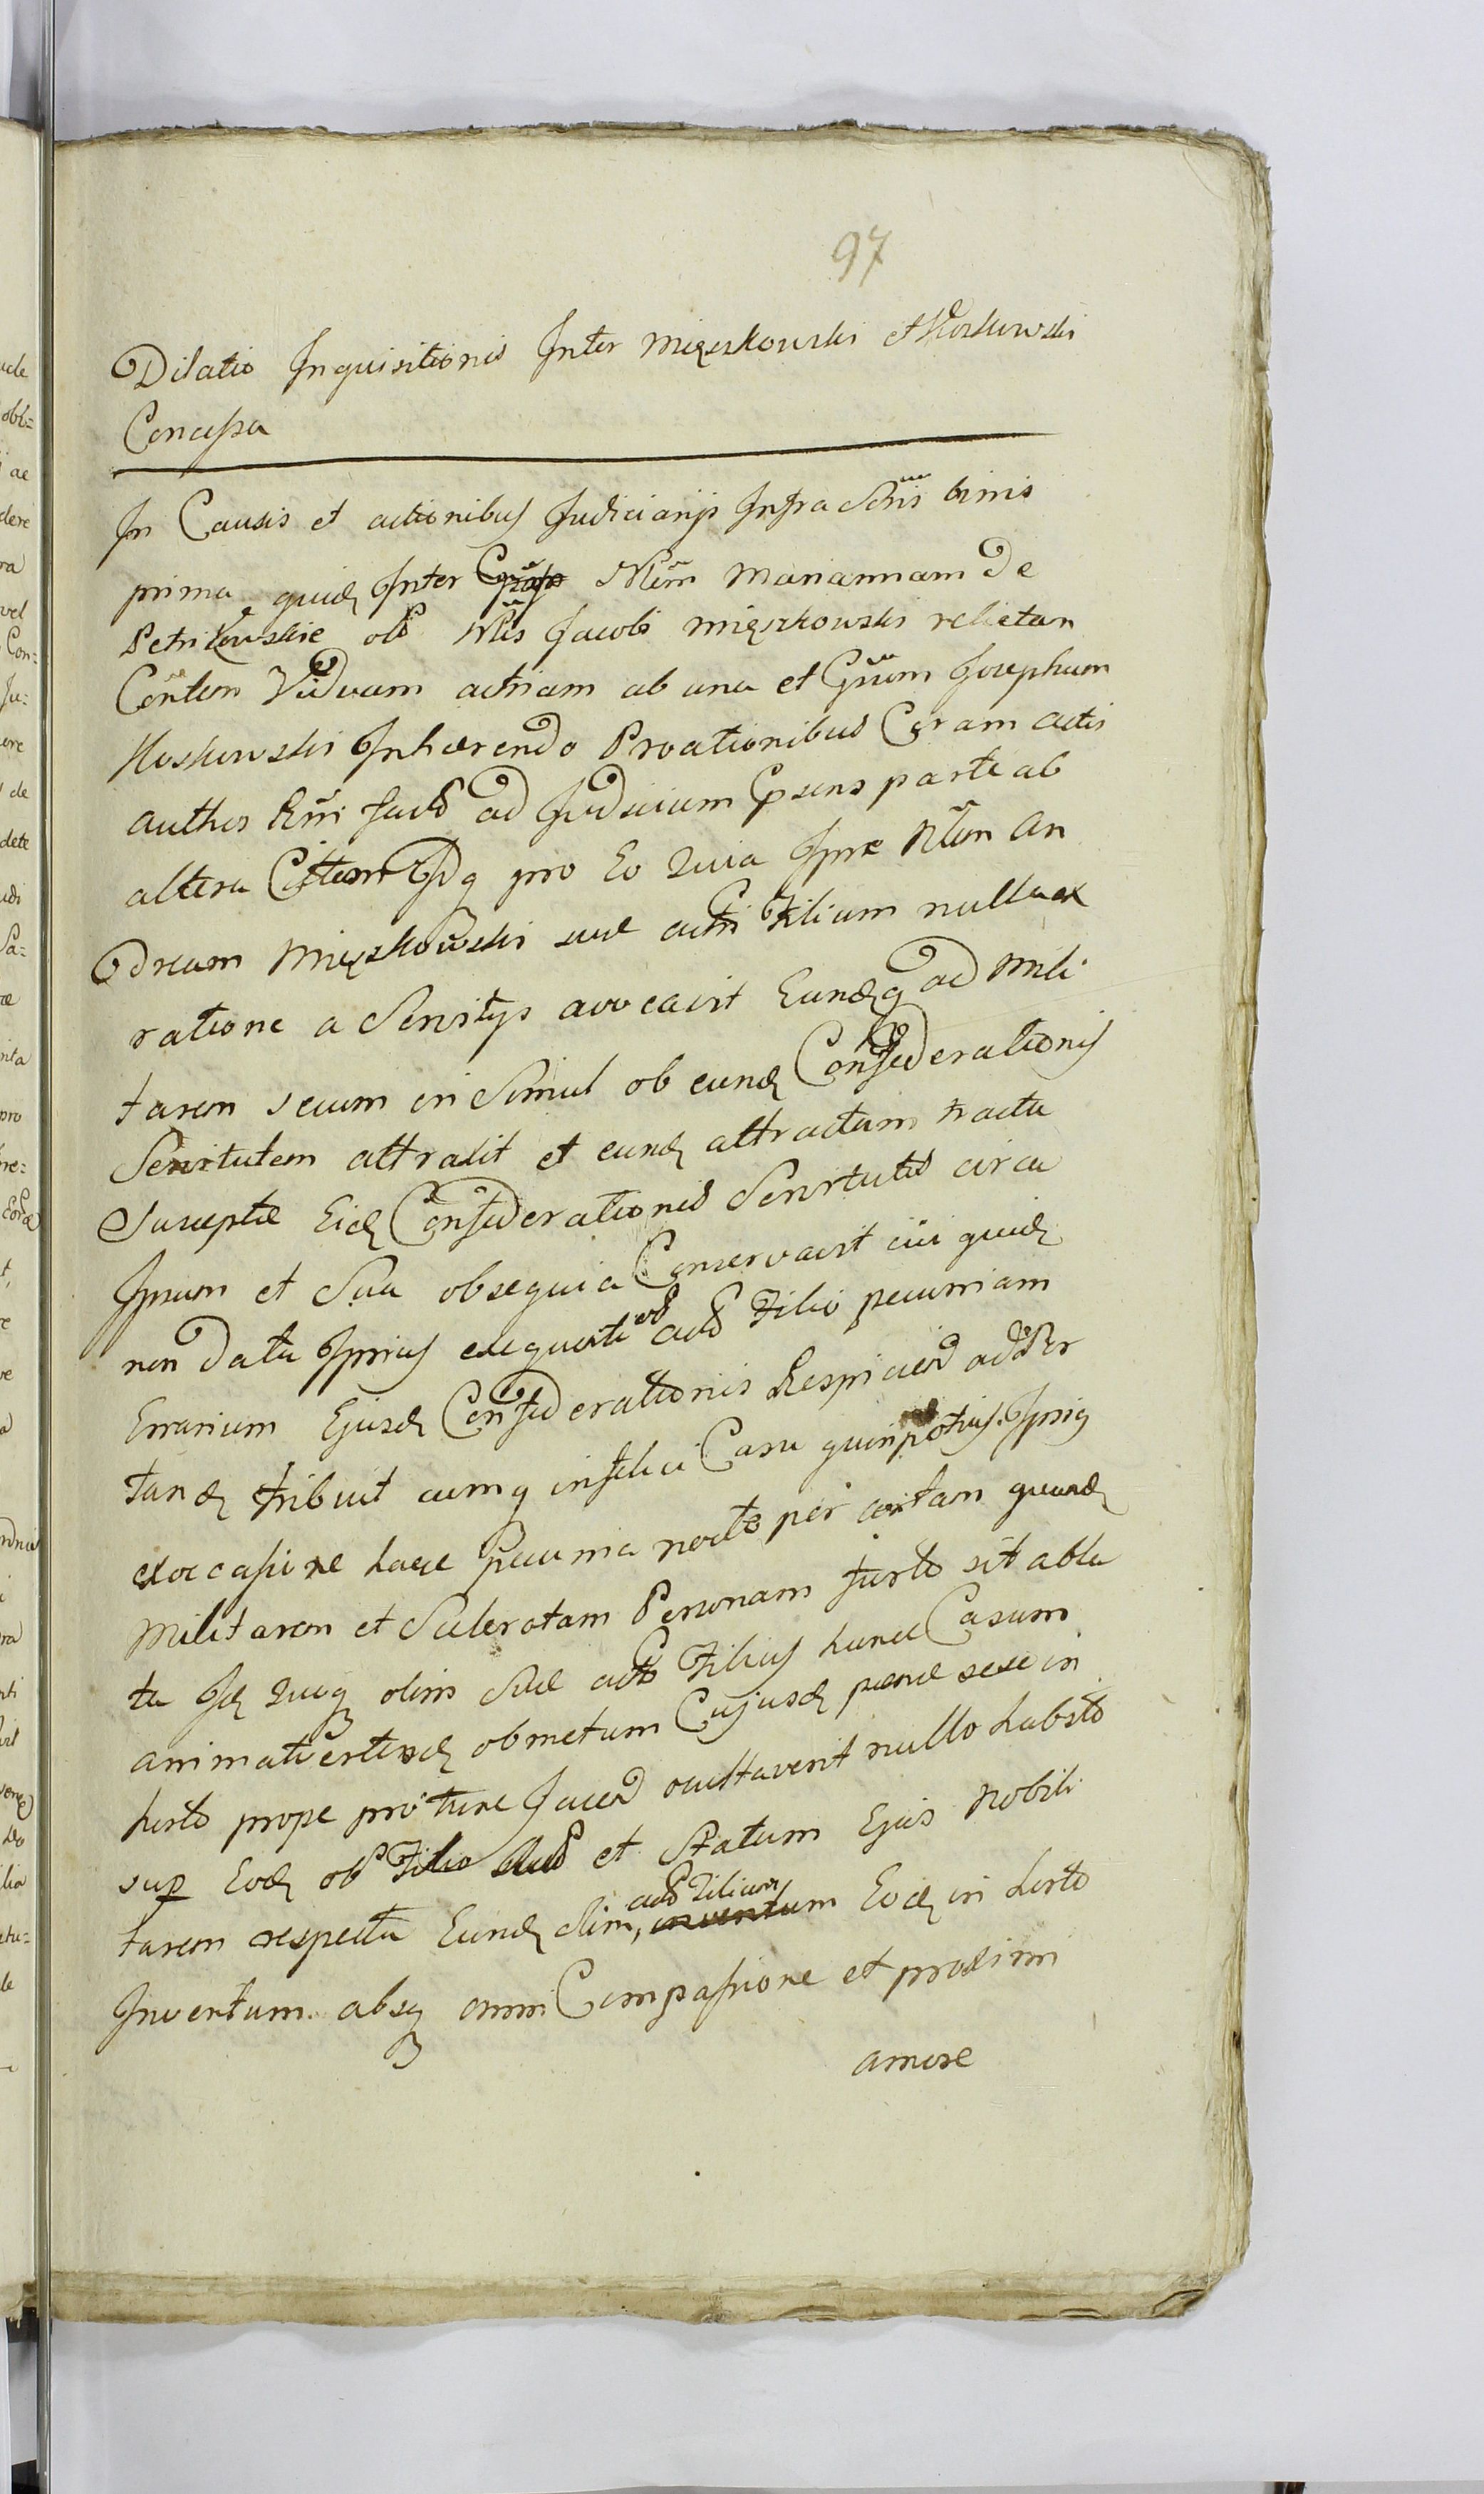 97
Dilatio Inquisitionis Inter Mięszkowski et Koskowski
Concessa
In Causis et actionibus Judiciarijs Infra Scriis binis
prima quidę Inter Nlem Mariannam De
Petrikowskie olī Nlis Jacobi Mięszkowski relictan
Contem Viduam actriam ab una et Gnum Josephum
Koskowski Inhærendo Proationibus Coram actis
author Rni fact ad Judicium Psens parte ab
altera Cittem Idq pro Eo Quia Ipse Nlem An
dream Mięszkowski suæ actri Filium nulla ex
ratione a Servitijs avocavit Eundęq ad Mili
tarem secum in Simul ob eundę Confederationis
Servitutem attraxit et eundę attractum tracta
Susceptæ Eidę Confederationis Servitutis circa
Ipsum et Sua obsequia Conservavit cui quidę
non data Ipsius exequenti Filio pecuniam
Errarium Ejusdę Confederationis Respicien ad Por
tandę tribuit cumq infelici Casu quinpotius Ipsiq
ex occasione haec pecunia nocte per certam quandę
Militarem et Sceleratam Personam furto sit abla
ta Idę Quiq olim Suæ act Filius hunc Casum
animatvertendę ob metum Cujusdę pænæ sese in
horto prope pro tunc Jacen occultaverit nullo habito
sup Eodę ob Filio et Statum Ejus Nobili
tarem respectu Eundę olim, act Filium inventum Eodę in horto
Inventum absq omni Compassione et proximi
amore